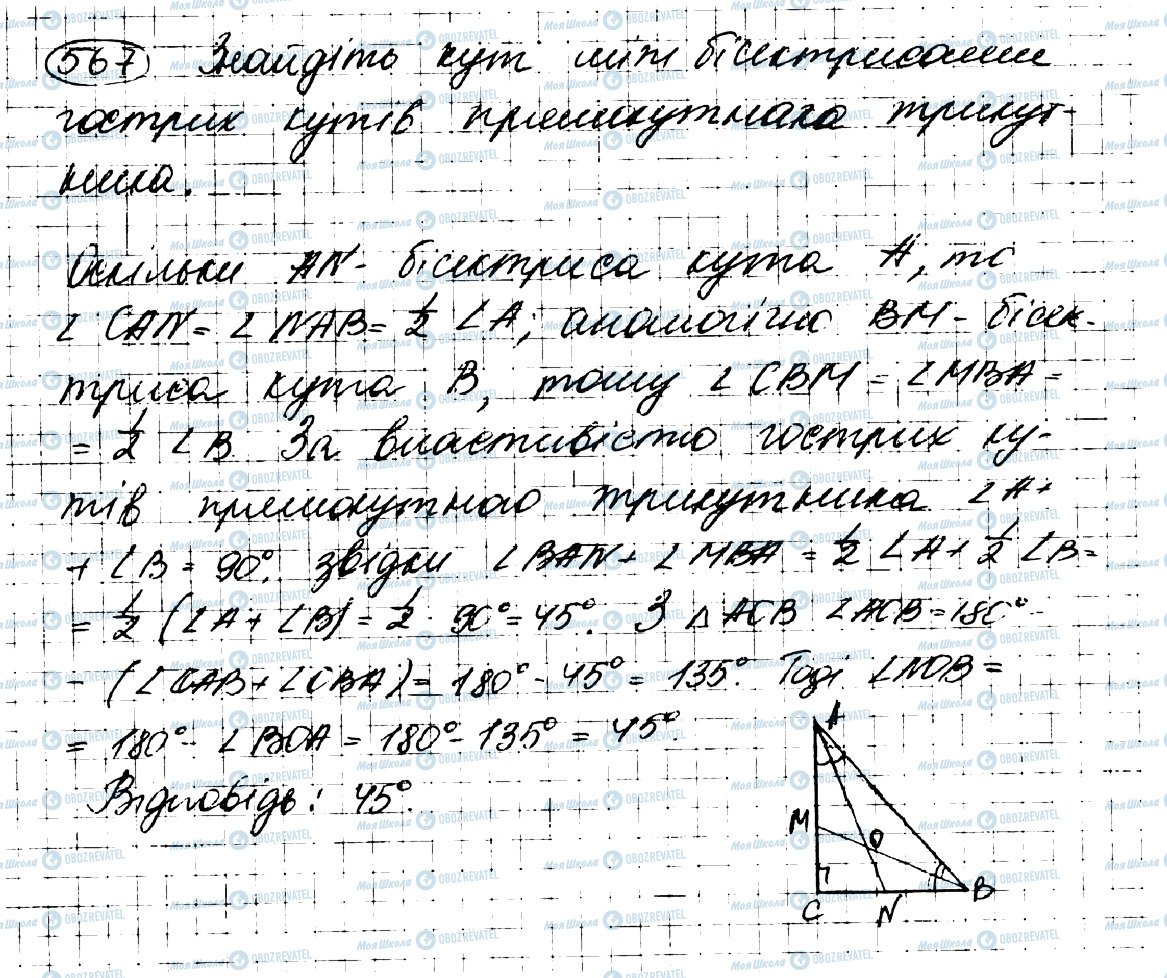 567 Знайдіть кут між бісектрисами
гострих кутів прямокутного трикут-
ника.
Оскільки AN - бісектриса кута A, то
∠CAN = ∠NAB = 1/2 ∠A; аналогічно BM - бісек-
триса кута B, тому ∠CBM = ∠MBA =
= 1/2 ∠B. За властивістю гострих ку-
тів прямокутного трикутника ∠A +
+ ∠B = 90°. звідки ∠BAN + ∠MBA = 1/2 ∠A + 1/2 ∠B =
= 1/2 (∠A + ∠B) = 1/2 · 90° = 45°. З △ AOB ∠AOB = 180° -
- (∠OAB + ∠OBA) = 180° - 45° = 135°. Тоді ∠NOB =
= 180° - ∠BOA = 180° - 135° = 45°.
Відповідь: 45°.
A
M
O
C N B
МояШкола OBOZREVATEL